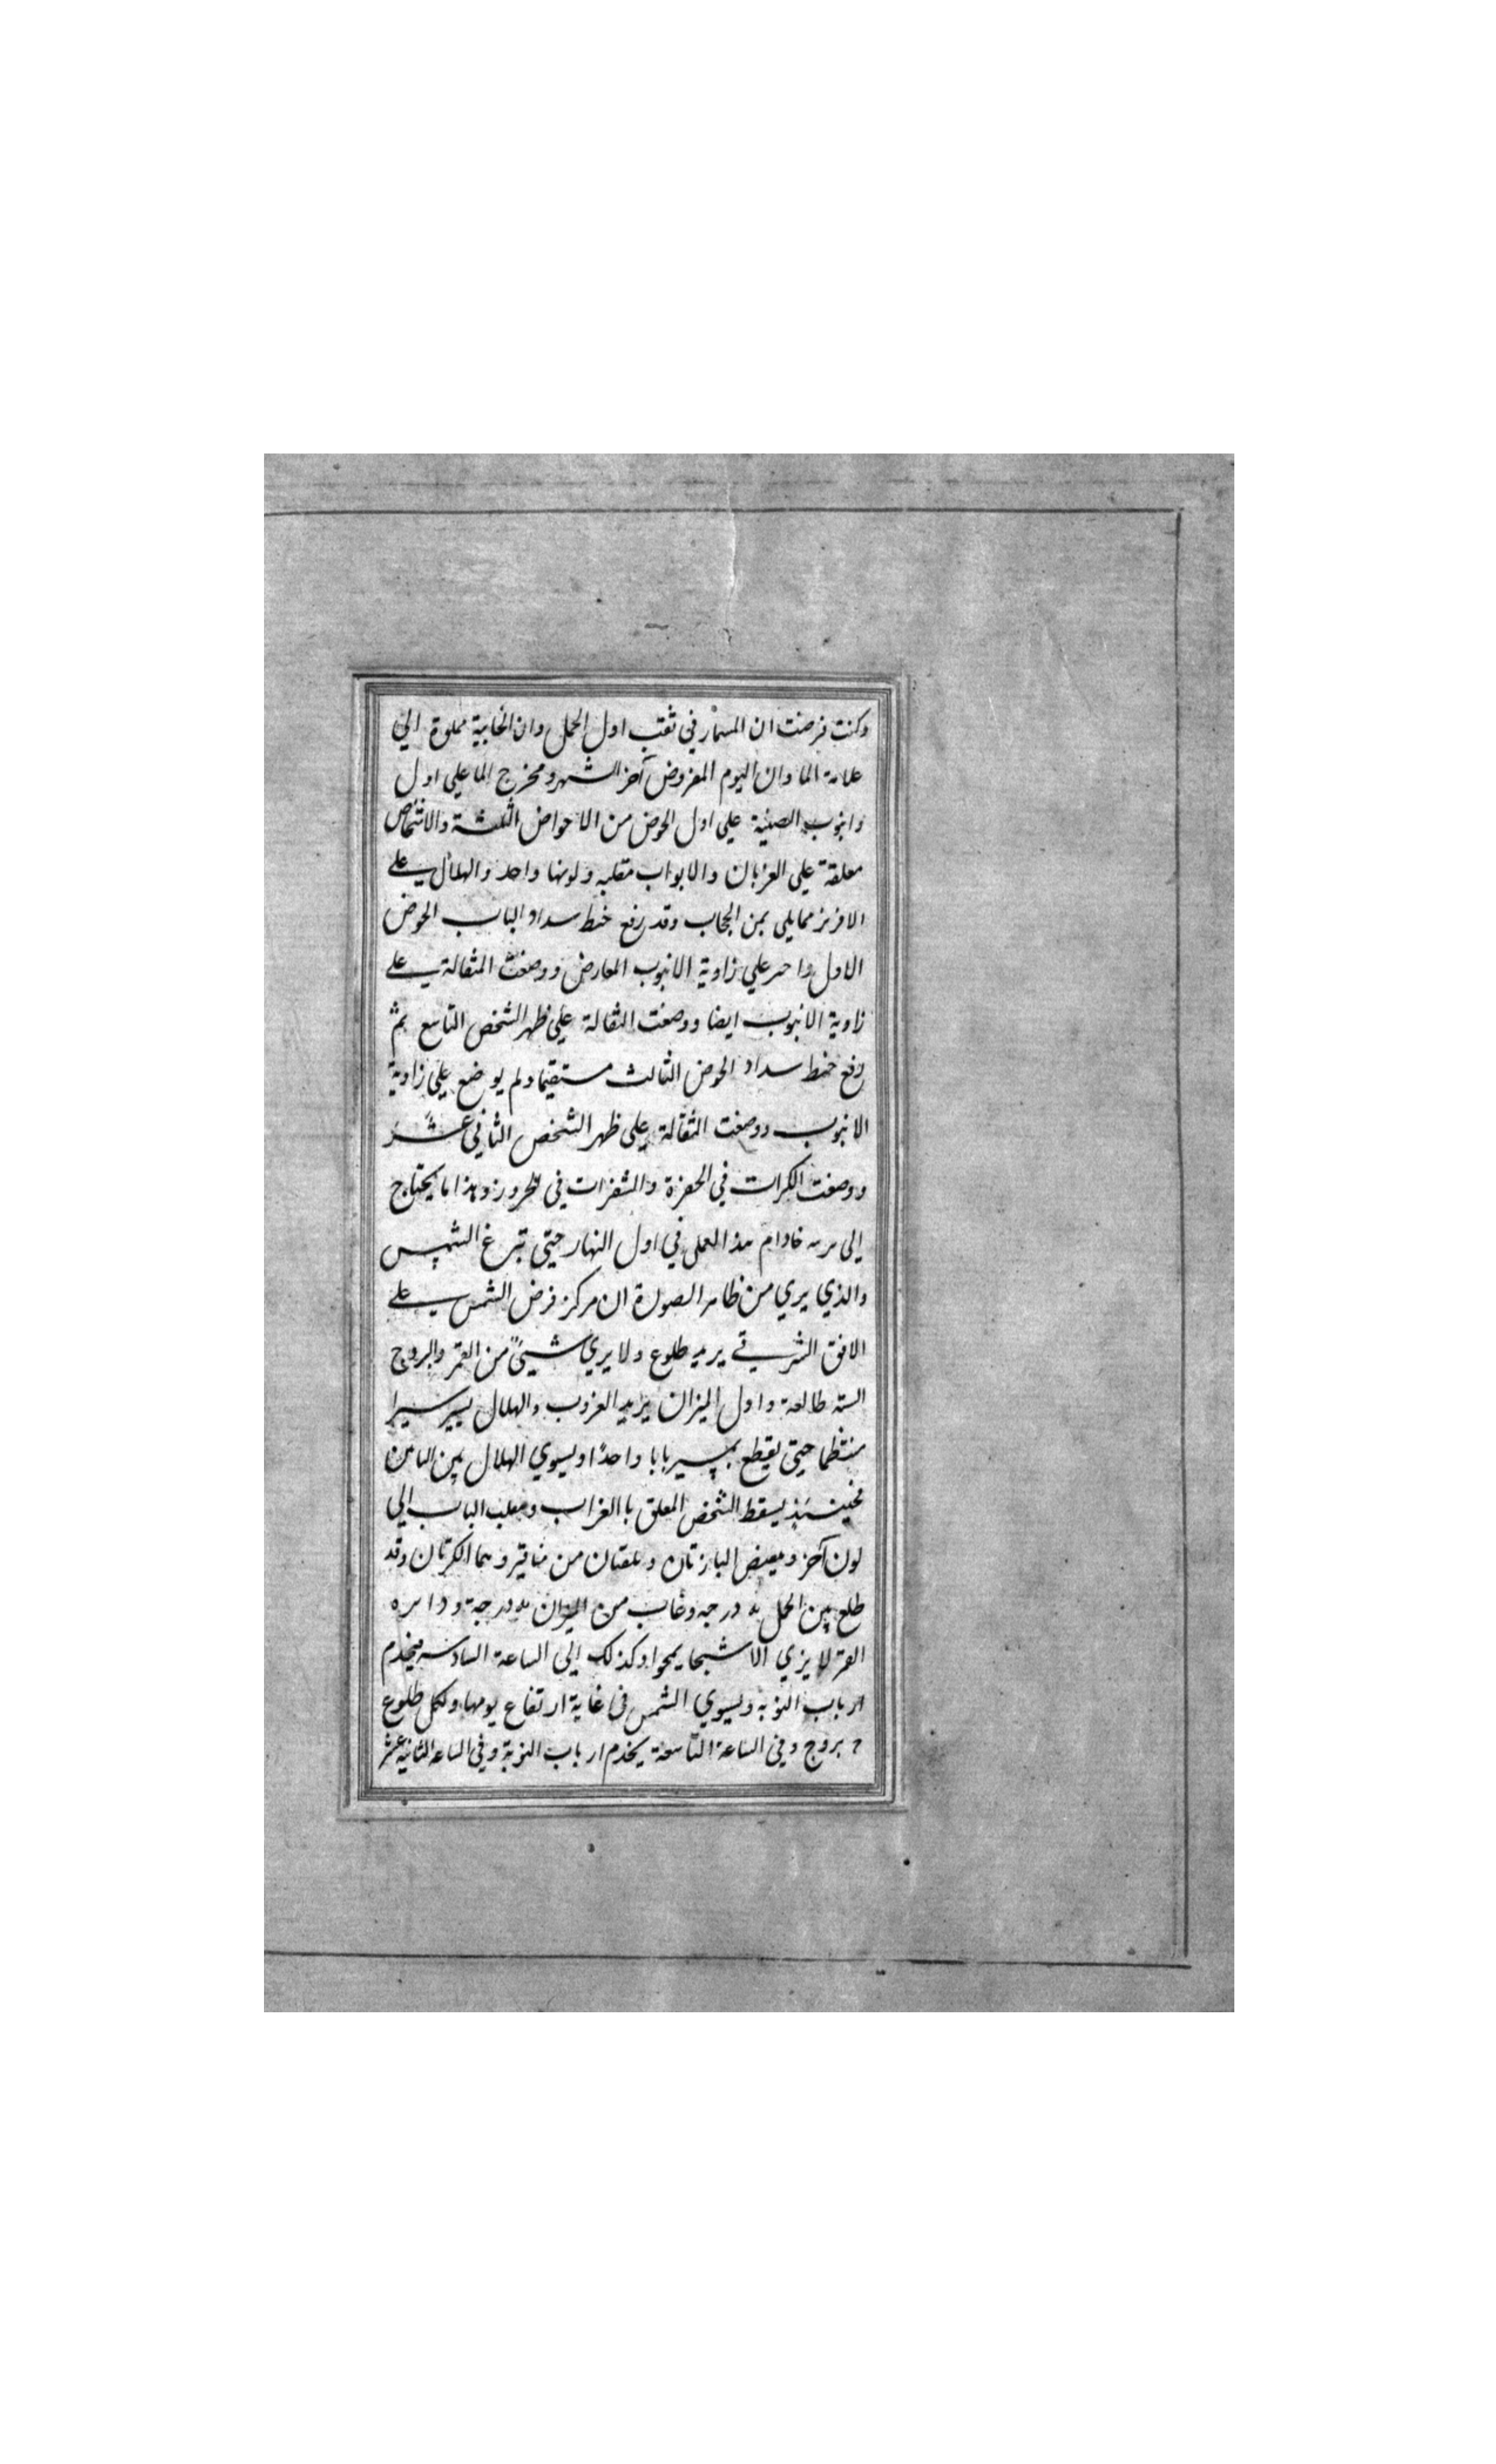 وكنت فرضت ان المسمار في ثقب اول الحمل وان الخابية مملوة الي
علامة الما وان اليوم المفروض آخر الشهر ومخرج الما علي اول
وانبوب الصينية علي اول الحوض من الاحواض الثلثة والاشخاص
معلقة علي الغربان والابواب مقلبه ولونها واحد والهلال علي
الافريز ممايلي يمن الجاب وقد رفع خيط سداد الباب الحوض
الاول واحر علي زاوية الانبوب المعارض ووضعت المثقالة علي
زاوية الانبوب ايضا ووضعت الثقالة علي ظهر الشخص التاسع ثم
رفع خيط سداد الحوض الثالث مستقيما ولم يوضع علي زاوية
الانبوب ووضعت الثقالة علي ظهر الشخص الثاني عشر
ووضعت الكرات في الحفرة والشفرات في وهذا ما يحتاج
إلي هذا العمل في اول النهار حتي تبزغ الشمس
والذي يري من ظاهر الصورة ان مركز قرض الشمس علي
الافق الشرقي يريد طلوع ولا يري شيئ من القمر والبروج
السته طالعة واول الميزان يريد الغروب والهلال يسير سيرا
منتظما حتي يقطع بمسير بابا واحدا ويسوي الهلال بين البابين
فحينئذ يسقط الشخص المعلق با الغراب ومقلب الباب الي
لون آخر البازتان وتلقتان من مناقير وهما الكرتان وقد
طلع من الحمل يه درجه وغاب من الميزان يه درجة ودايره
القمر لا يري الا شبحا يمحوا وكذلك إلي الساعة السادسه فيخدم
ارباب النوبه ويسوي الشمس في غاية ارتفاع يومها ولكمل طلوع
بروج وفي الساعة التاسعة يخدم ارباب النوبة وفي الساعه الثانية عشر